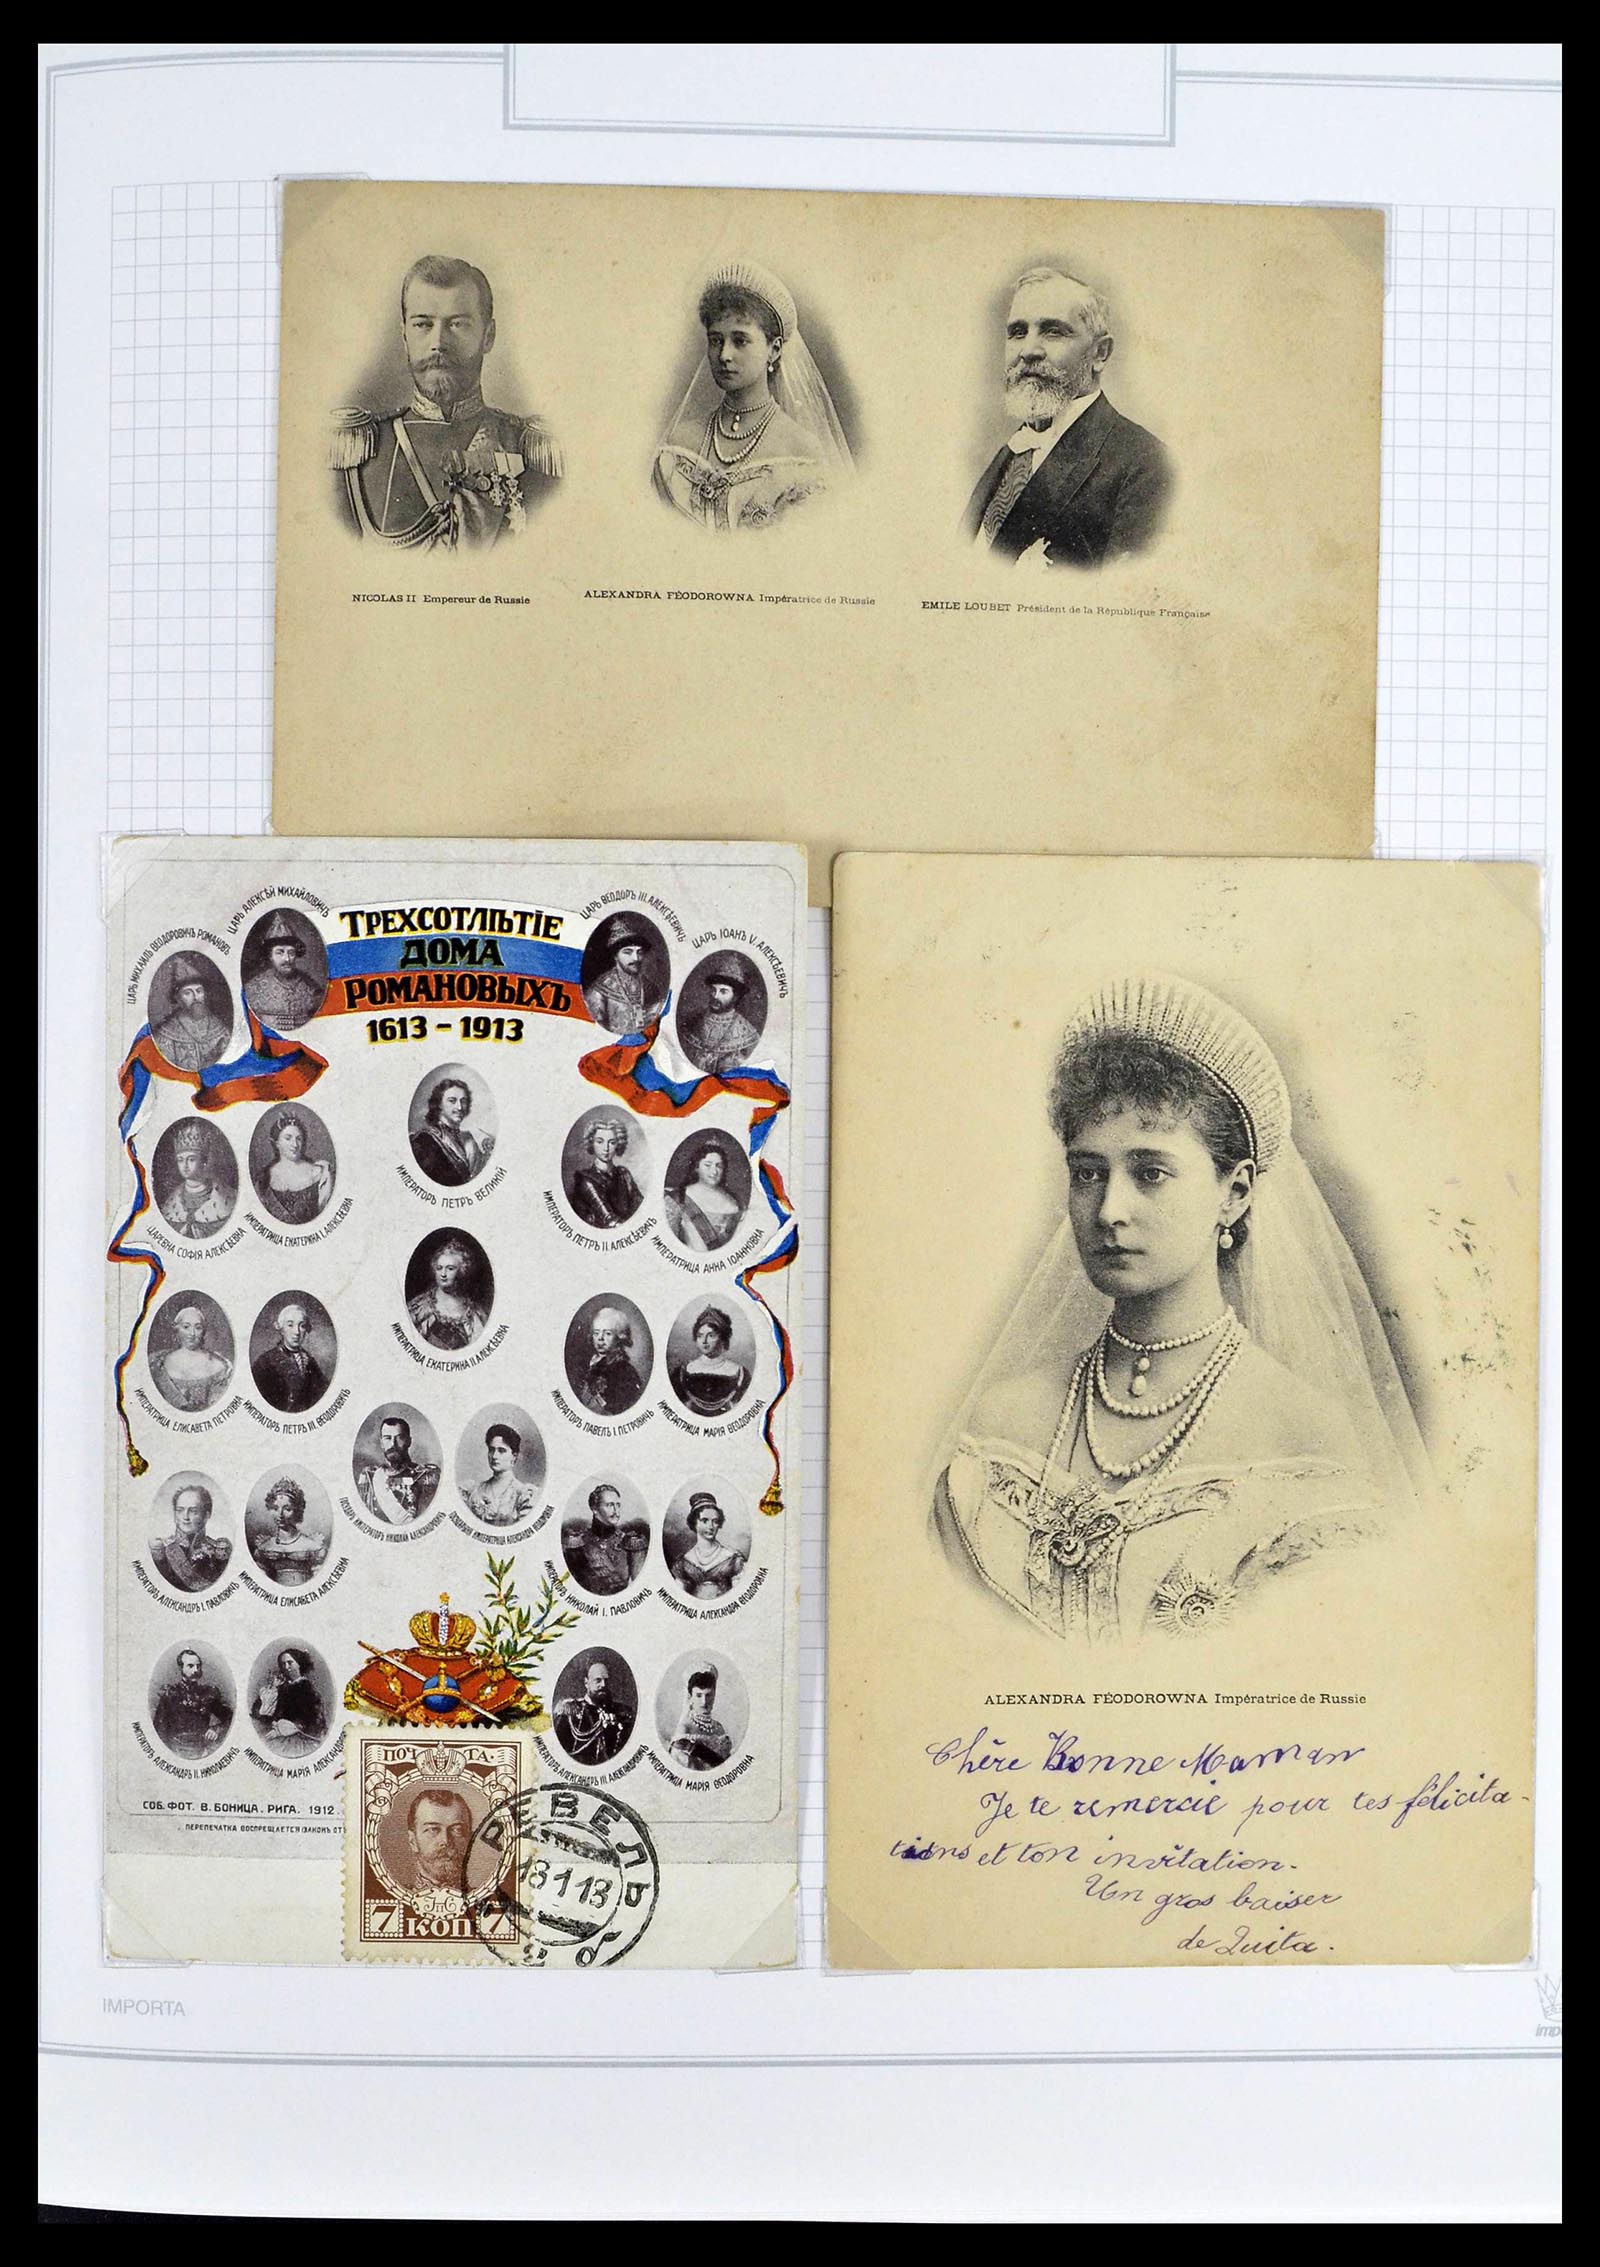 NICOLAS II Empereur de Russie
ALEXANDRA FÉODOROWNA Impératrice de Russie
EMILE LOUBET Président de la République Française
ТРЕХСОТЛѢТІЕ
ДОМА
РОМАНОВЫХЪ
1613 - 1913
ЦАРЬ МИХАИЛЪ ѲЕОДОРОВИЧЪ РОМАНОВЪ
ЦАРЬ АЛЕКСѢЙ МИХАЙЛОВИЧЪ
ЦАРЬ ѲЕОДОРЪ III АЛЕКСѢЕВИЧЪ
ЦАРЬ ІОАНЪ V. АЛЕКСѢЕВИЧЪ
ЦАРЕВНА СОФІЯ АЛЕКСѢЕВНА
ИМПЕРАТРИЦА ЕКАТЕРИНА I. АЛЕКСѢЕВНА
ИМПЕРАТОРЪ ПЕТРЪ ВЕЛИКІЙ
ИМПЕРАТОРЪ ПЕТРЪ II. АЛЕКСѢЕВИЧЪ
ИМПЕРАТРИЦА АННА ІОАННОВНА
ИМПЕРАТРИЦА ЕКАТЕРИНА II. АЛЕКСѢЕВНА
ИМПЕРАТРИЦА ЕЛИСАВЕТА ПЕТРОВНА
ИМПЕРАТОРЪ ПЕТРЪ III ѲЕОДОРОВИЧЪ
ИМПЕРАТОРЪ ПАВЕЛЪ I. ПЕТРОВИЧЪ
ИМПЕРАТРИЦА МАРІЯ ѲЕОДОРОВНА
ГОСУДАРЬ ИМПЕРАТОРЪ НИКОЛАЙ АЛЕКСАНДРОВИЧЪ
ГОСУДАРЫНЯ ИМПЕРАТРИЦА АЛЕКСАНДРА ѲЕОДОРОВНА
ИМПЕРАТОРЪ АЛЕКСАНДРЪ I. ПАВЛОВИЧЪ
ИМПЕРАТРИЦА ЕЛИСАВЕТА АЛЕКСѢЕВНА
ИМПЕРАТОРЪ НИКОЛАЙ I. ПАВЛОВИЧЪ
ИМПЕРАТРИЦА АЛЕКСАНДРА ѲЕОДОРОВНА
ИМПЕРАТОРЪ АЛЕКСАНДРЪ II. НИКОЛАЕВИЧЪ
ИМПЕРАТРИЦА МАРІЯ АЛЕКСАНДРО
ИМПЕРАТОРЪ АЛЕКСАНДРЪ III. АЛЕКСАНДРОВИЧЪ
ИМПЕРАТРИЦА МАРІЯ ѲЕОДОРОВНА
СОБ. ФОТ. В. БОНИЦА. РИГА. 1912.
ПЕРЕПЕЧАТКА ВОСПРЕЩАЕТСЯ (ЗАКОНЪ ОТ
ПОЧТА.
7 КОП 7
РЕВЕЛЬ
18 1 13
ALEXANDRA FÉODOROWNA Impératrice de Russie
Chère Bonne Maman
Je te remercie pour tes félicita-
tions et ton invitation.
Un gros baiser
de Quita.
IMPORTA